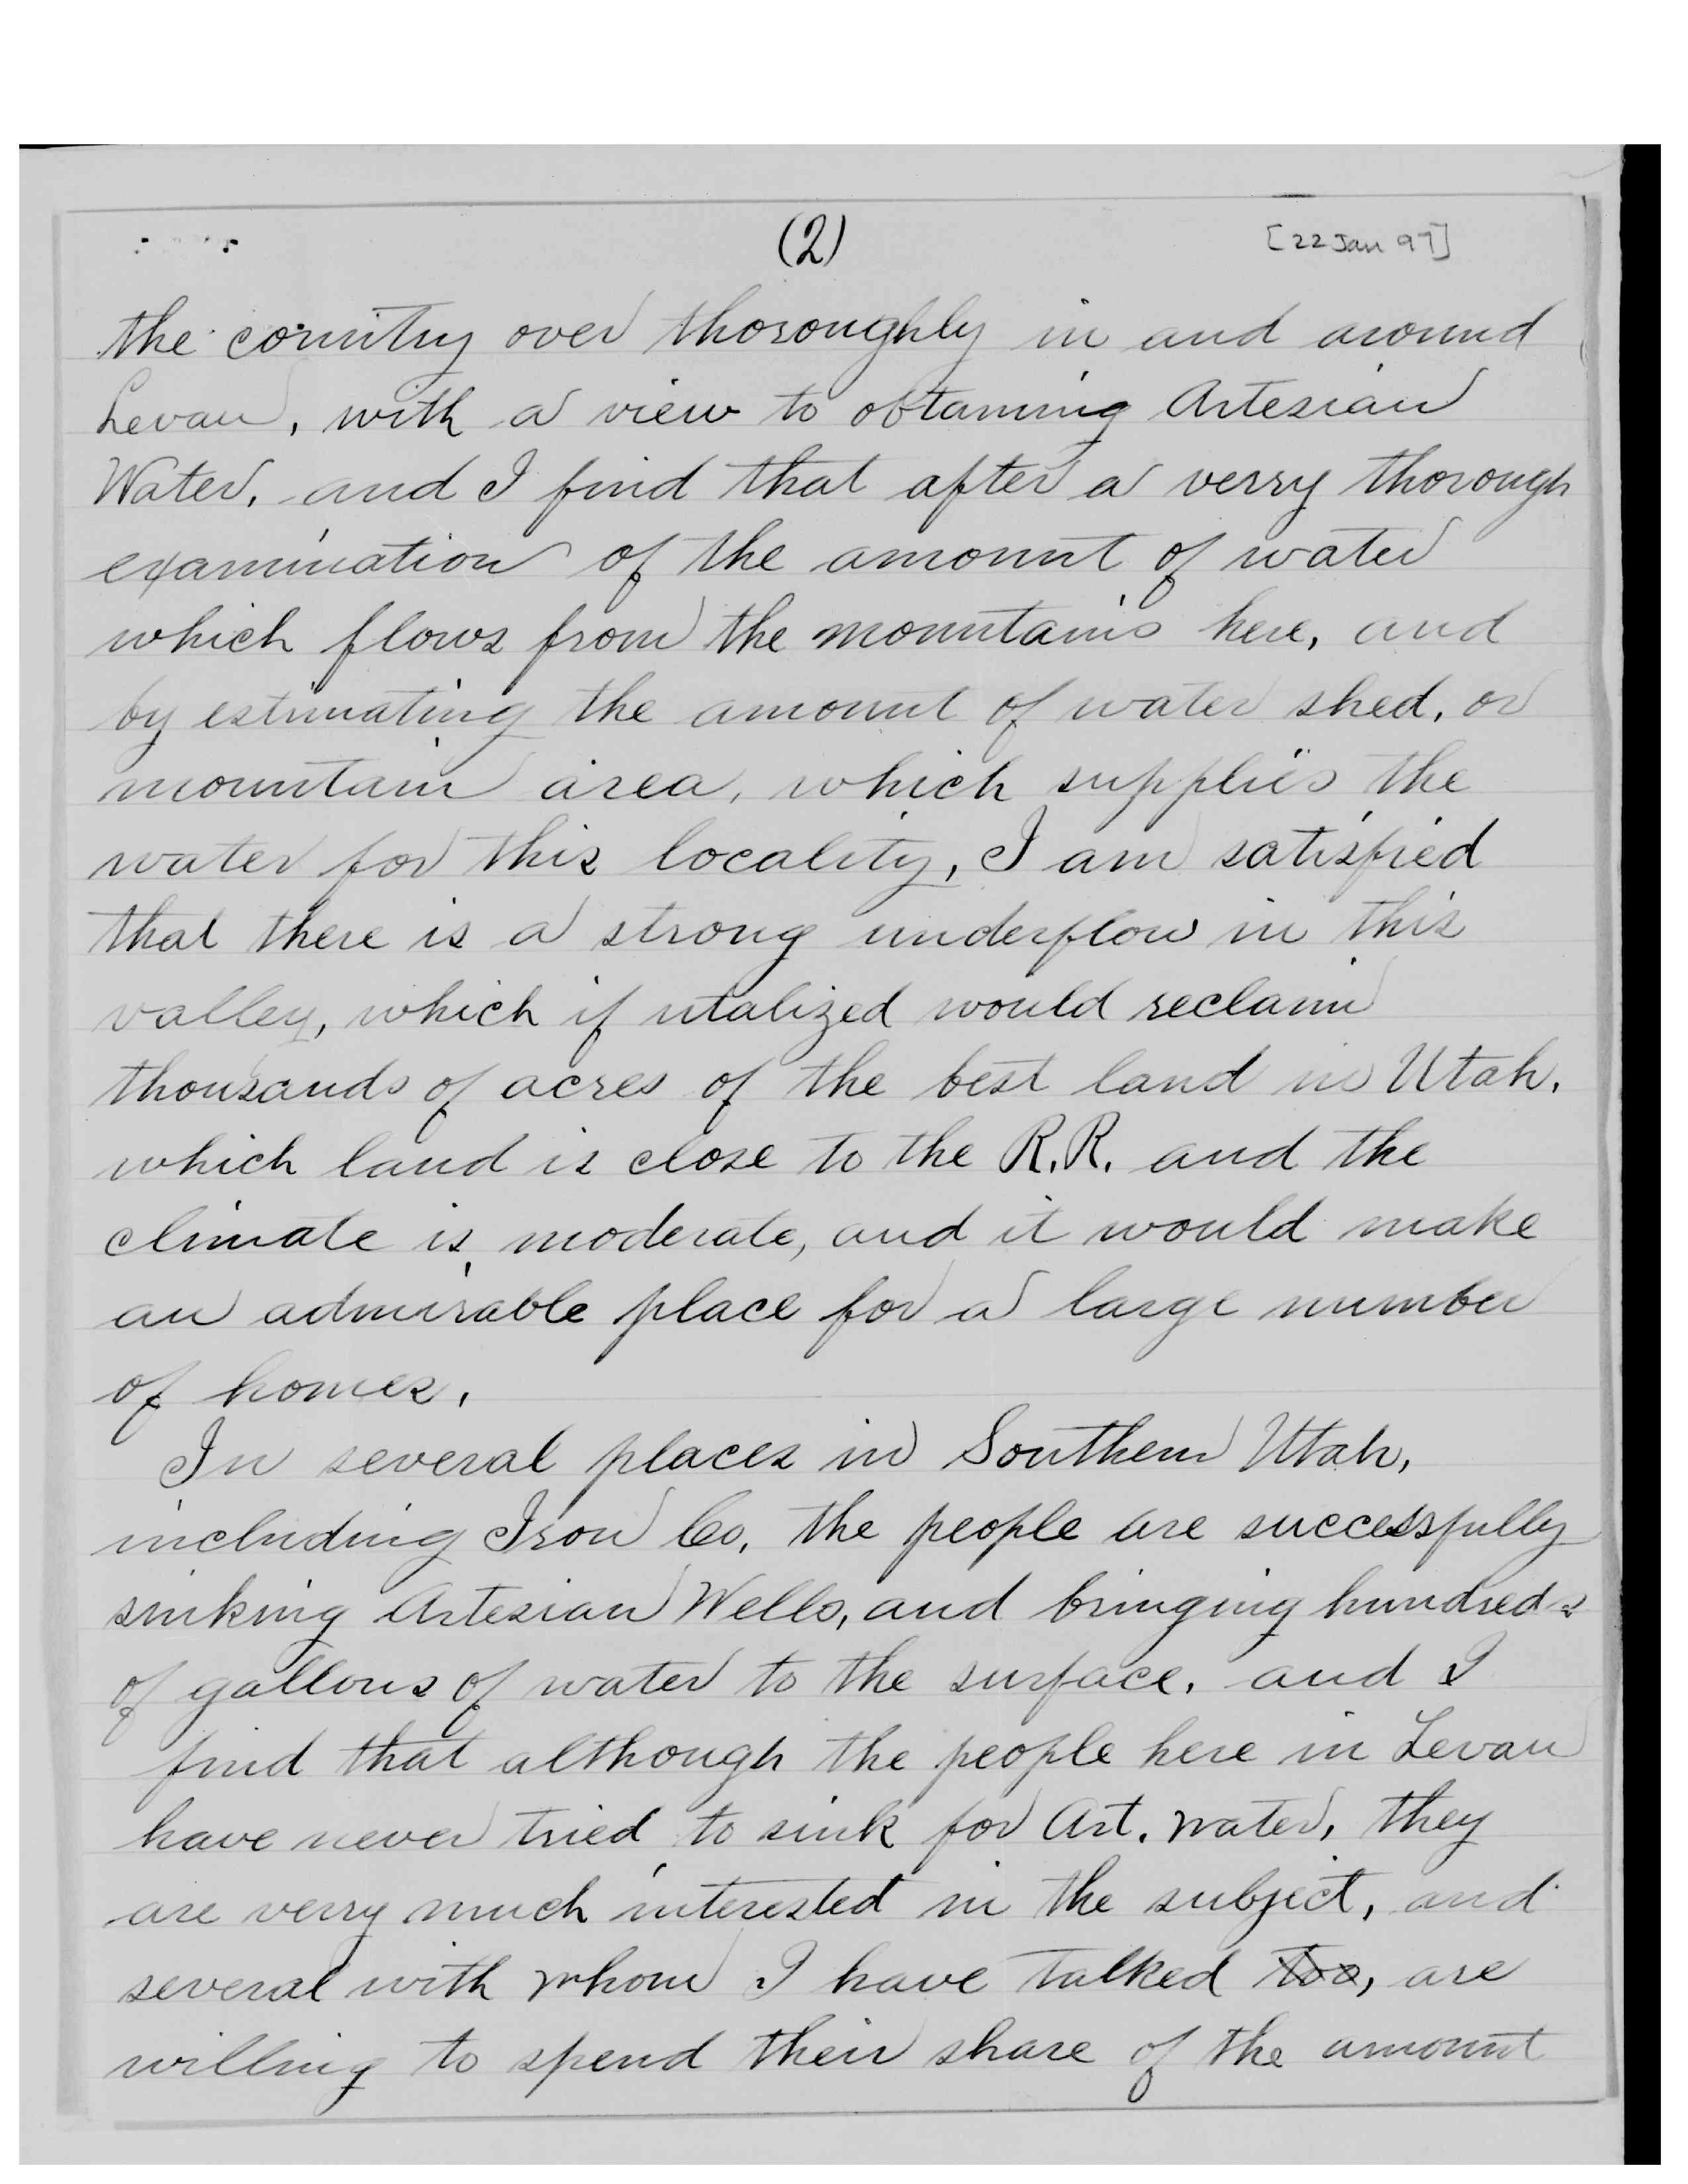 (2)
[22 Jan 97]
the country over thoroughly in and around
Levan, with a view to obtaining Artesian
Water, and I find that after a verry thorough
examination of the amount of water
which flows from the mountains here, and
by estimating the amount of water shed, or
mountain area, which supplies the
water for this locality, I am satisfied
that there is a strong underflow in this
valley, which if utalized would reclaim
thousands of acres of the best land in Utah,
which land is close to the R.R. and the
climate is moderate, and it would make
an admirable place for a large number
of homes.
In several places in Southern Utah,
including Iron Co, the people are successfully
sinking Artesian Wells, and bringing hundreds
of gallons of water to the surface, and I
find that although the people here in Levan
have never tried to sink for Art. water, they
are verry much interested in the subject, and
several with whom I have talked too, are
willing to spend their share of the amount